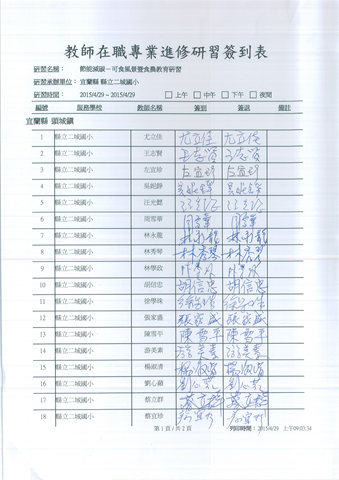 教師在職專業進修研習簽到表
研習名稱： 節能減碳－可食風景暨食農教育研習
研習承辦單位：宜蘭縣 縣立二城國小
研習時間： 2015/4/29 ~ 2015/4/29 □上午 □中午 □下午 □夜間
編號 服務學校 教師名稱 簽到 簽退 備註
宜蘭縣 頭城鎮
1 縣立二城國小 尤立佳 尤立佳 尤立佳
2 縣立二城國小 王志賢 王志賢 王志賢
3 縣立二城國小 左宜珍 左宜珍 左宜珍
4 縣立二城國小
5 縣立二城國小 汪光懿
6 縣立二城國小 周雪華 周雪華 周雪華
7 縣立二城國小 林永龍 林永龍 林永龍
8 縣立二城國小 林秀琴 林秀琴 林秀琴
9 縣立二城國小 林學政
10 縣立二城國小 胡信忠 胡信忠 胡信忠
11 縣立二城國小 徐學珠
12 縣立二城國小 張家盛 張家盛 張家盛
13 縣立二城國小 陳雪平 陳雪平 陳雪平
14 縣立二城國小 游美素 游美素 游美素
15 縣立二城國小 楊淑清
16 縣立二城國小 劉心蘋
17 縣立二城國小 蔡立群
18 縣立二城國小 蔡宜珍
第 1 頁 / 共 2 頁 列印時間：2015/4/29 上午09:03:34